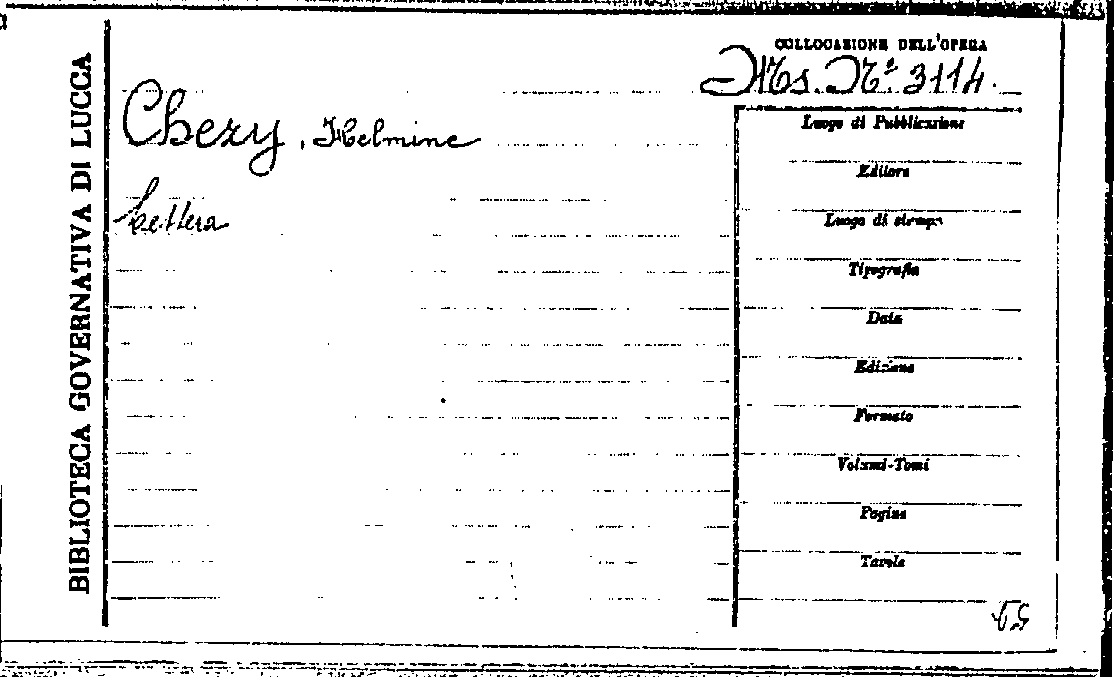 BIBLIOTECA GOVERNATIVA DI LUCCA
COLLOCAZIONE DELL'OPERA
Ms. N.º 3114.
Chezy, Helmine
Lettera
Luogo di Pubblicazione
Editore
Luogo di stampa
Tipografia
Data
Edizione
Formato
Volumi-Tomi
Pagine
Tavole